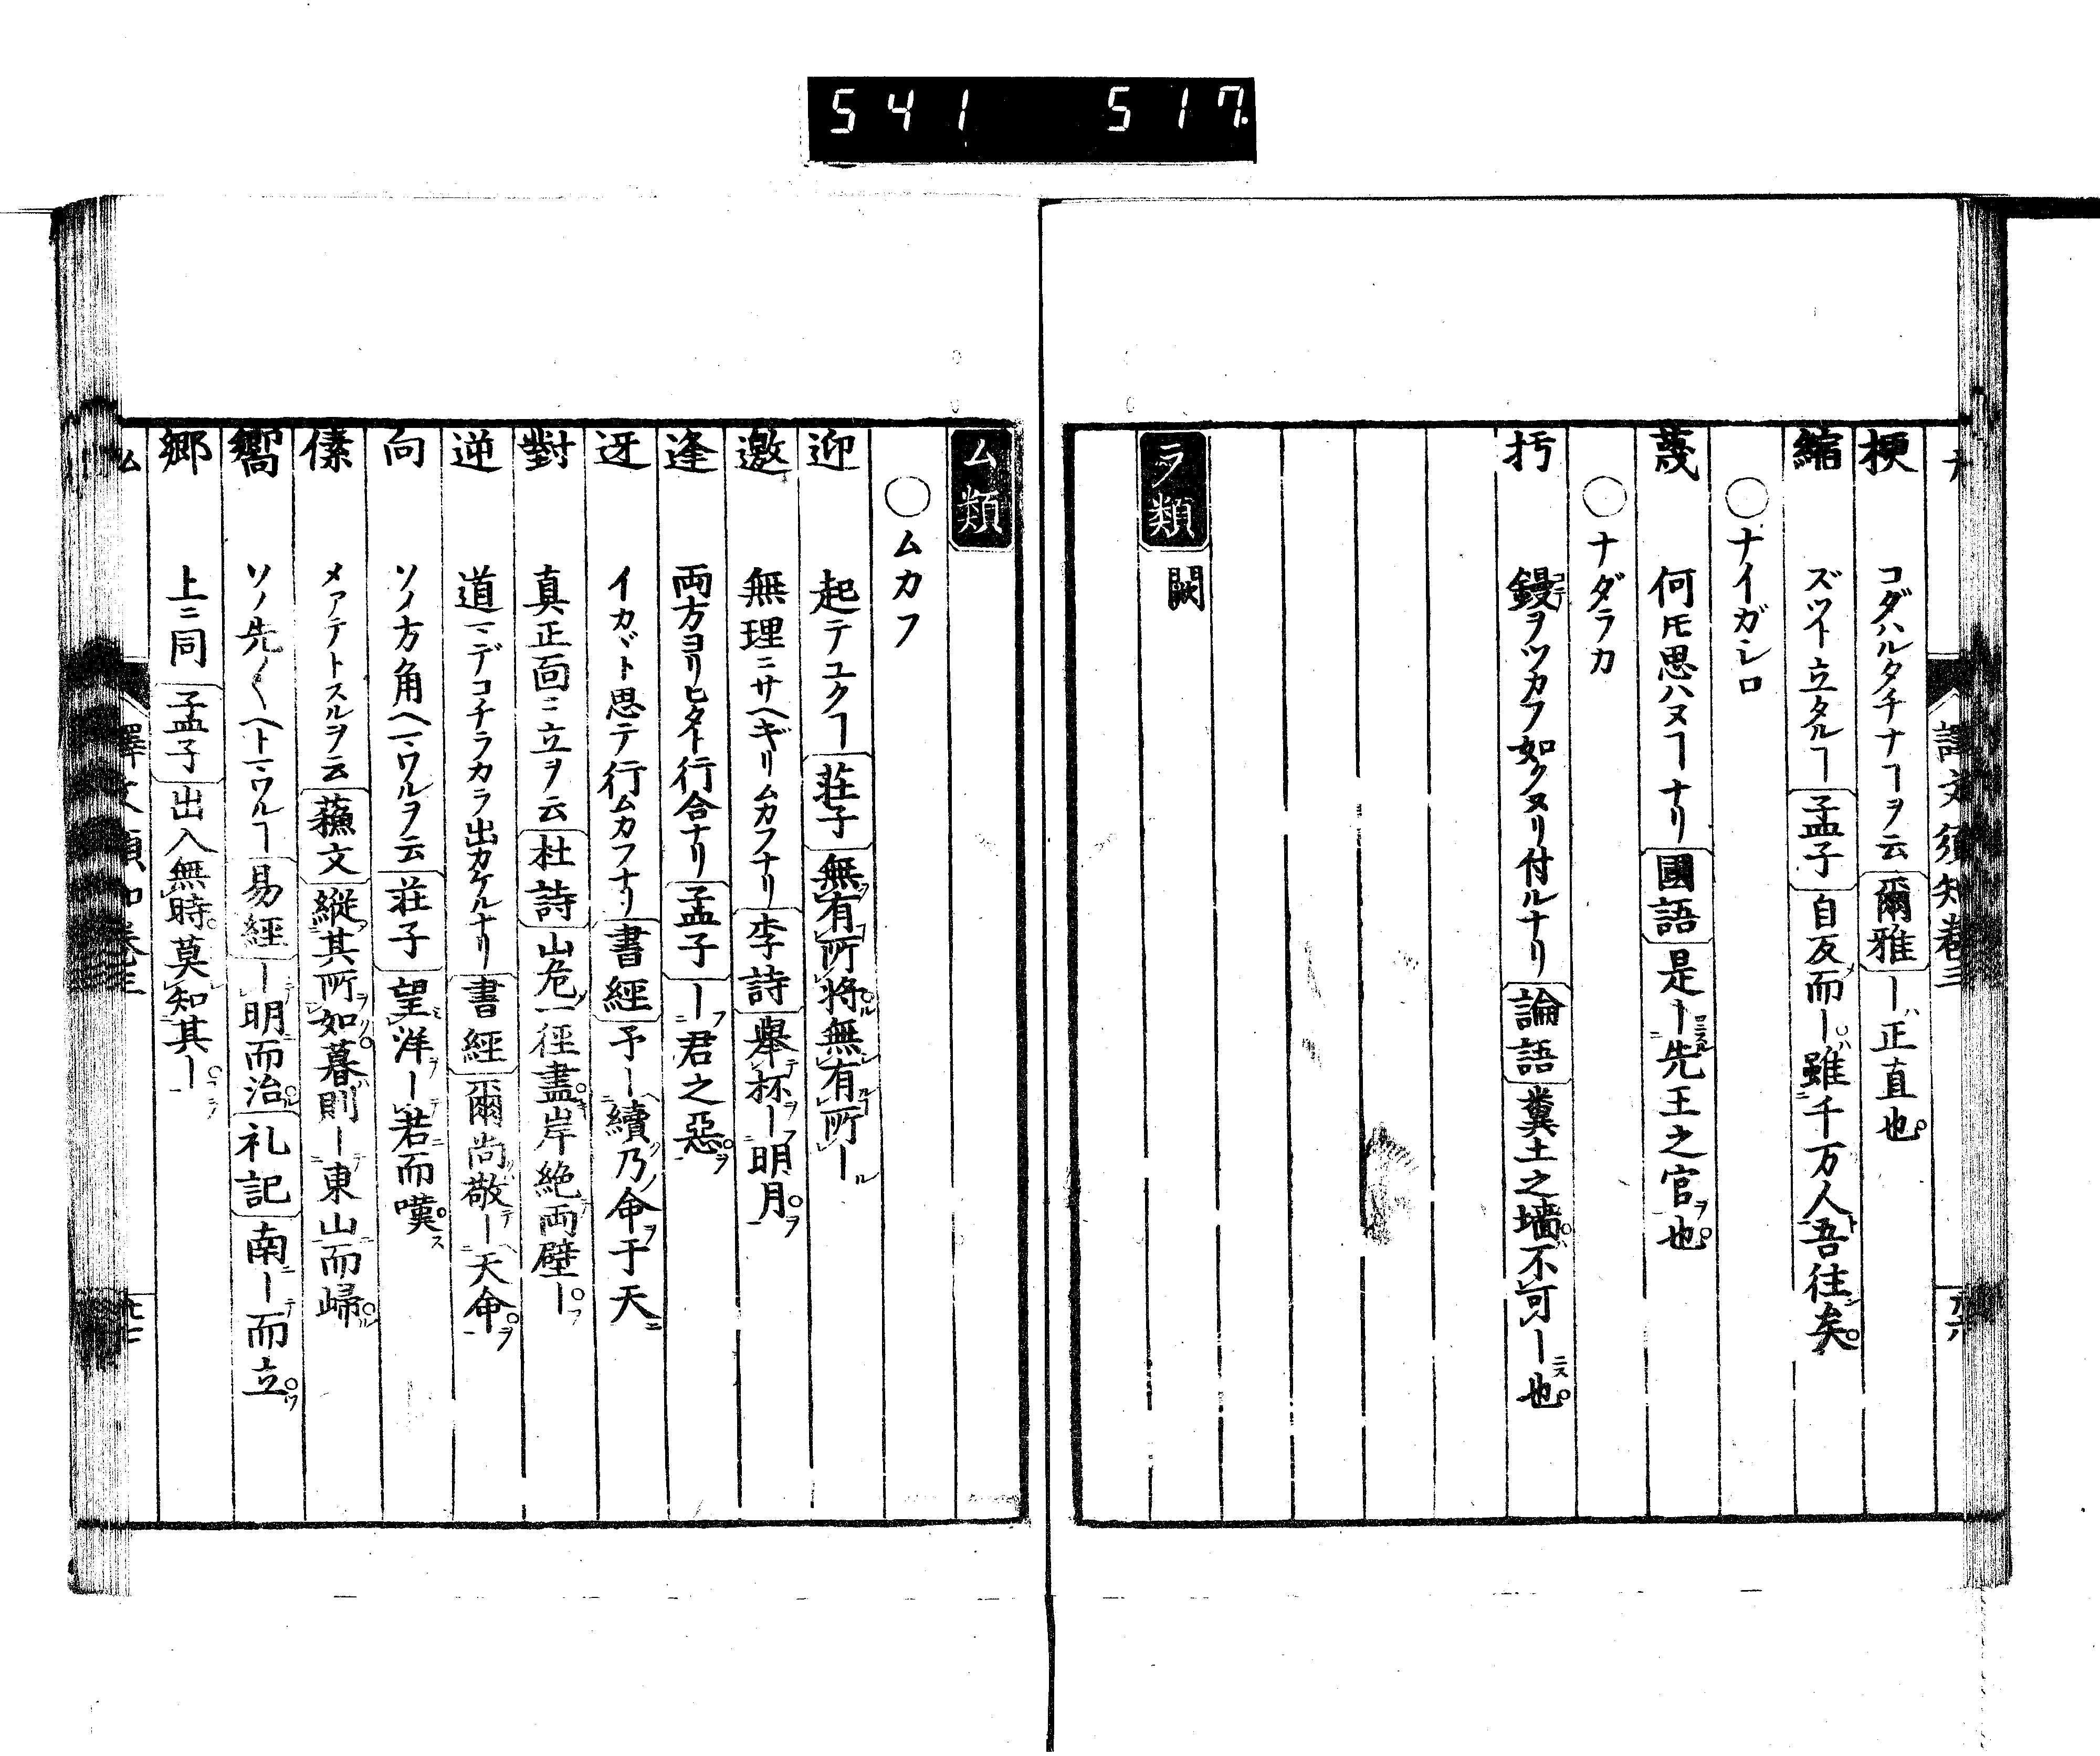 541 517
譯文須知巻三
九六
梗 コダハルタチナヿヲ云 爾雅 ー正直也
縮 ズツト立タルヿ 孟子 自反而ー雖千万人吾往矣
○ナイガシロ
蔑 何モ思ハヌヿナリ 國語 是ー先王之官也
○ナダラカ
圬 鏝ヲツカフ如クヌリ付ルナリ 論語 糞土之墻不可ー也
ラ類 闕
ム類
○ムカフ
迎 起テユクヿ 荘子 無有所將無有所ー
邀 無理ニサヘギリムカフナリ 李詩 擧杯ー明月
逢 両方ヨリヒタト行合ナリ 孟子 ー君之惡
迓 イカヾト思テ行ムカフナリ 書經 予ー續乃命于天
對 真正面ニ立ヲ云 杜詩 山危一徑盡岸絶両壁ー
逆 道ニデコチラカラ出カケルナリ 書經 爾尚敬ー天命
向 ソノ方角ヘムカルヲ云 荘子 望洋ー若而嘆
傃 メアテトスルヲ云 蘓文 縦其所如暮則ー東山而歸
嚮 ソノ先〱ヘトムカルヿ 易經 ー明而治 礼記 南ー而立
郷 上ニ同 孟子 出入無時莫知其ー
ム
譯文須知巻三
九七